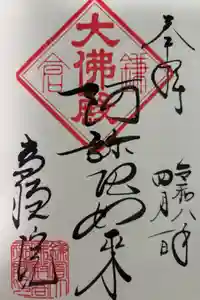 奉拝
令和八年
四月一日
大佛殿
鎌倉
阿弥陀如来
高徳院